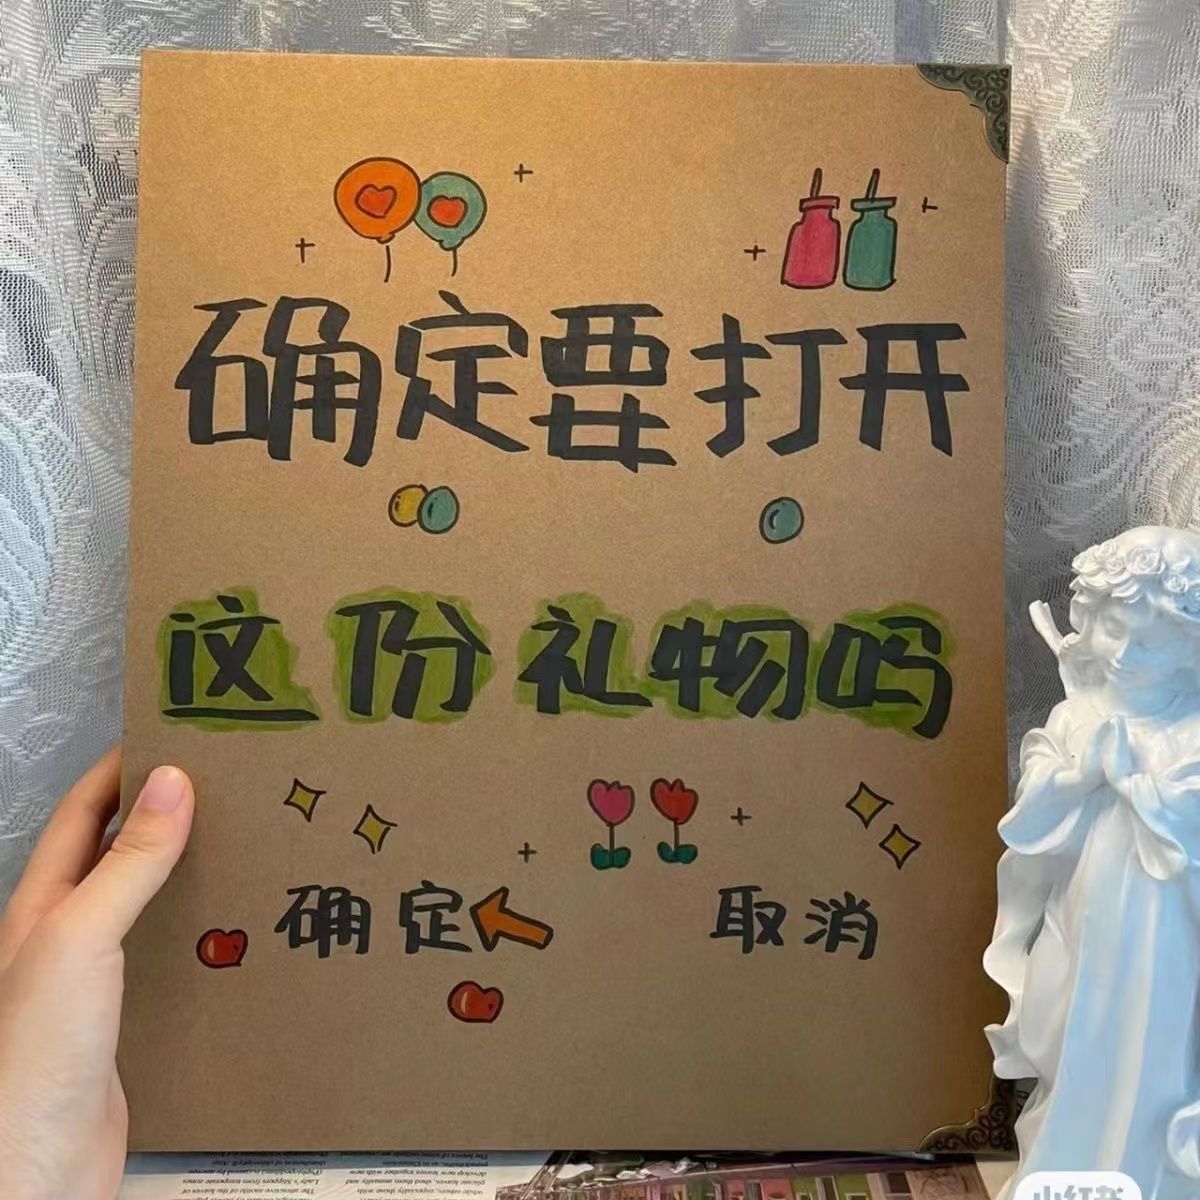 确定要打开
这份礼物吗
确定 取消
小红书